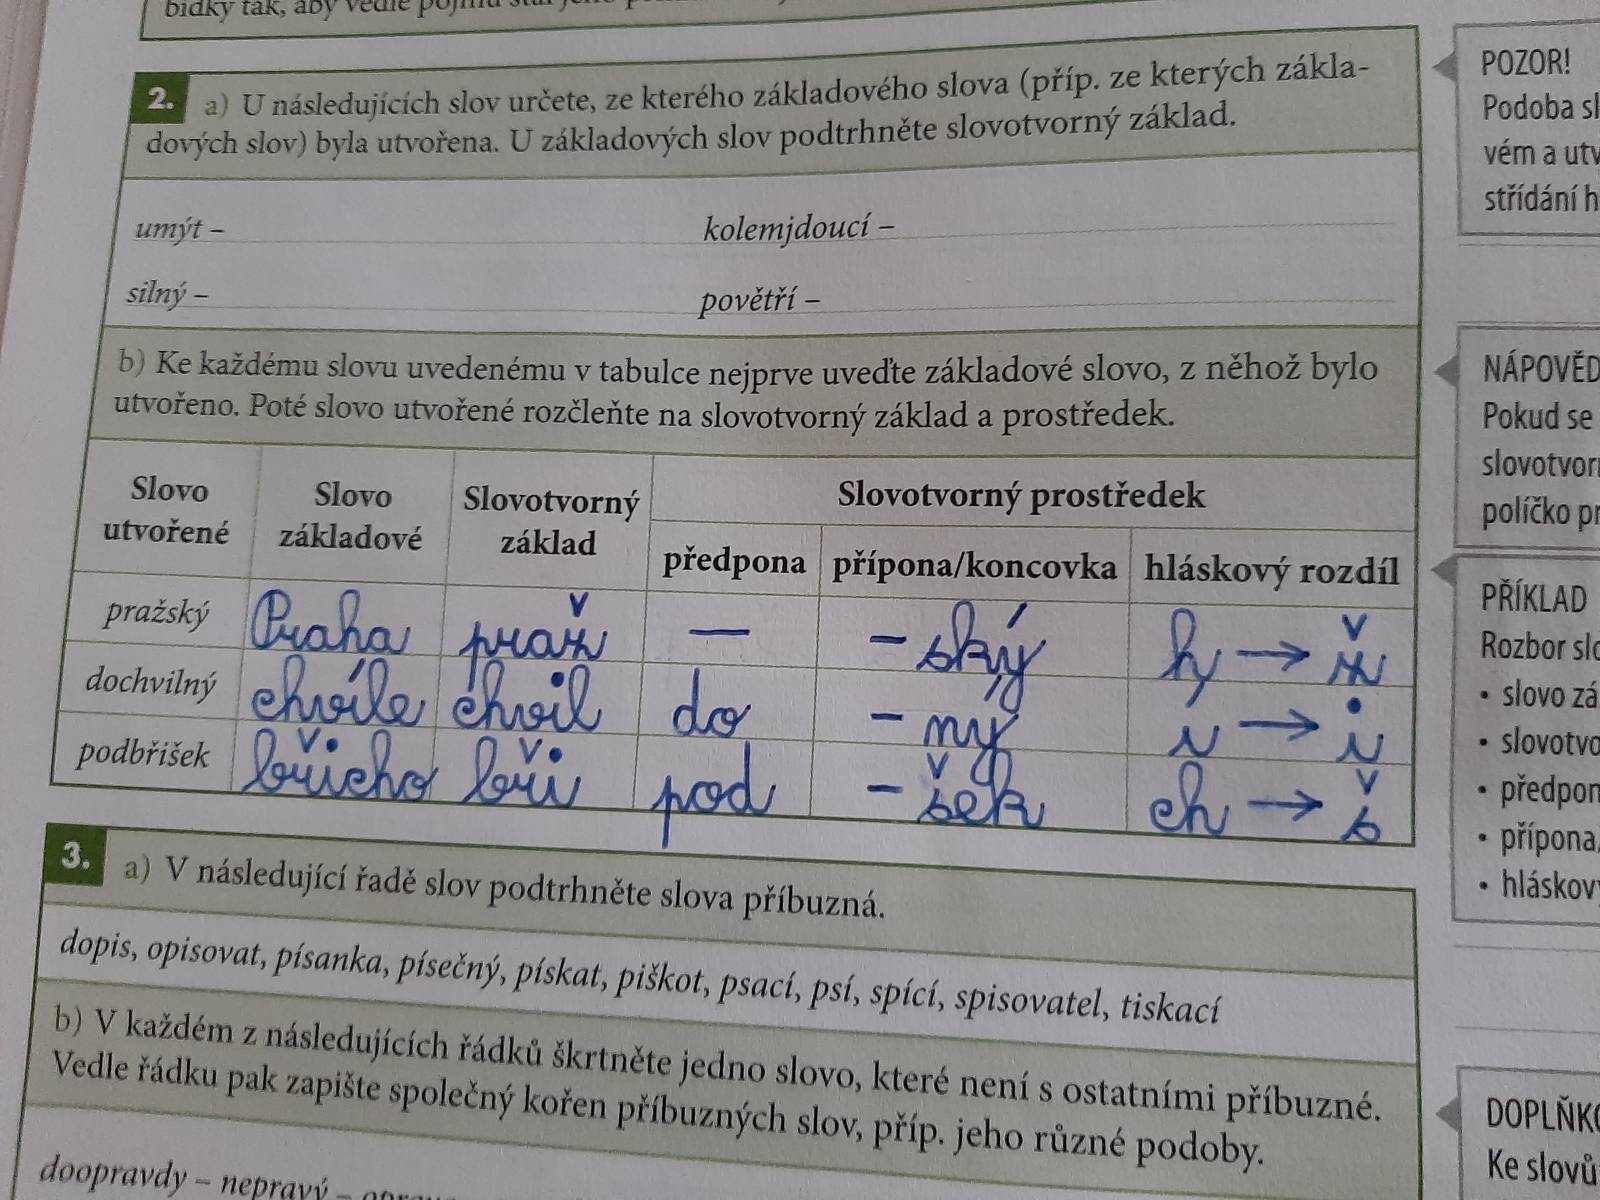 2. a) U následujících slov určete, ze kterého základového slova (příp. ze kterých zákla-
dových slov) byla utvořena. U základových slov podtrhněte slovotvorný základ.
umýt – kolemjdoucí –
silný – povětří –
b) Ke každému slovu uvedenému v tabulce nejprve uveďte základové slovo, z něhož bylo
utvořeno. Poté slovo utvořené rozčleňte na slovotvorný základ a prostředek.
Slovo utvořené Slovo základové Slovotvorný základ Slovotvorný prostředek
předpona přípona/koncovka hláskový rozdíl
pražský Praha praž — -ský h → ž
dochvilný chvíle chvil do -ný í → i
podbřišek břicho bři pod -šek ch → š
3. a) V následující řadě slov podtrhněte slova příbuzná.
dopis, opisovat, písanka, písečný, pískat, piškot, psací, psí, spící, spisovatel, tiskací
b) V každém z následujících řádků škrtněte jedno slovo, které není s ostatními příbuzné.
Vedle řádku pak zapište společný kořen příbuzných slov, příp. jeho různé podoby.
doopravdy – nepravý –
POZOR!
Podoba
vém a
střídání
NÁPOVĚD
Pokud se
políčko
PŘÍKLAD
Rozbor
• slovo
•
•
•
•
DOPLŇK
Ke